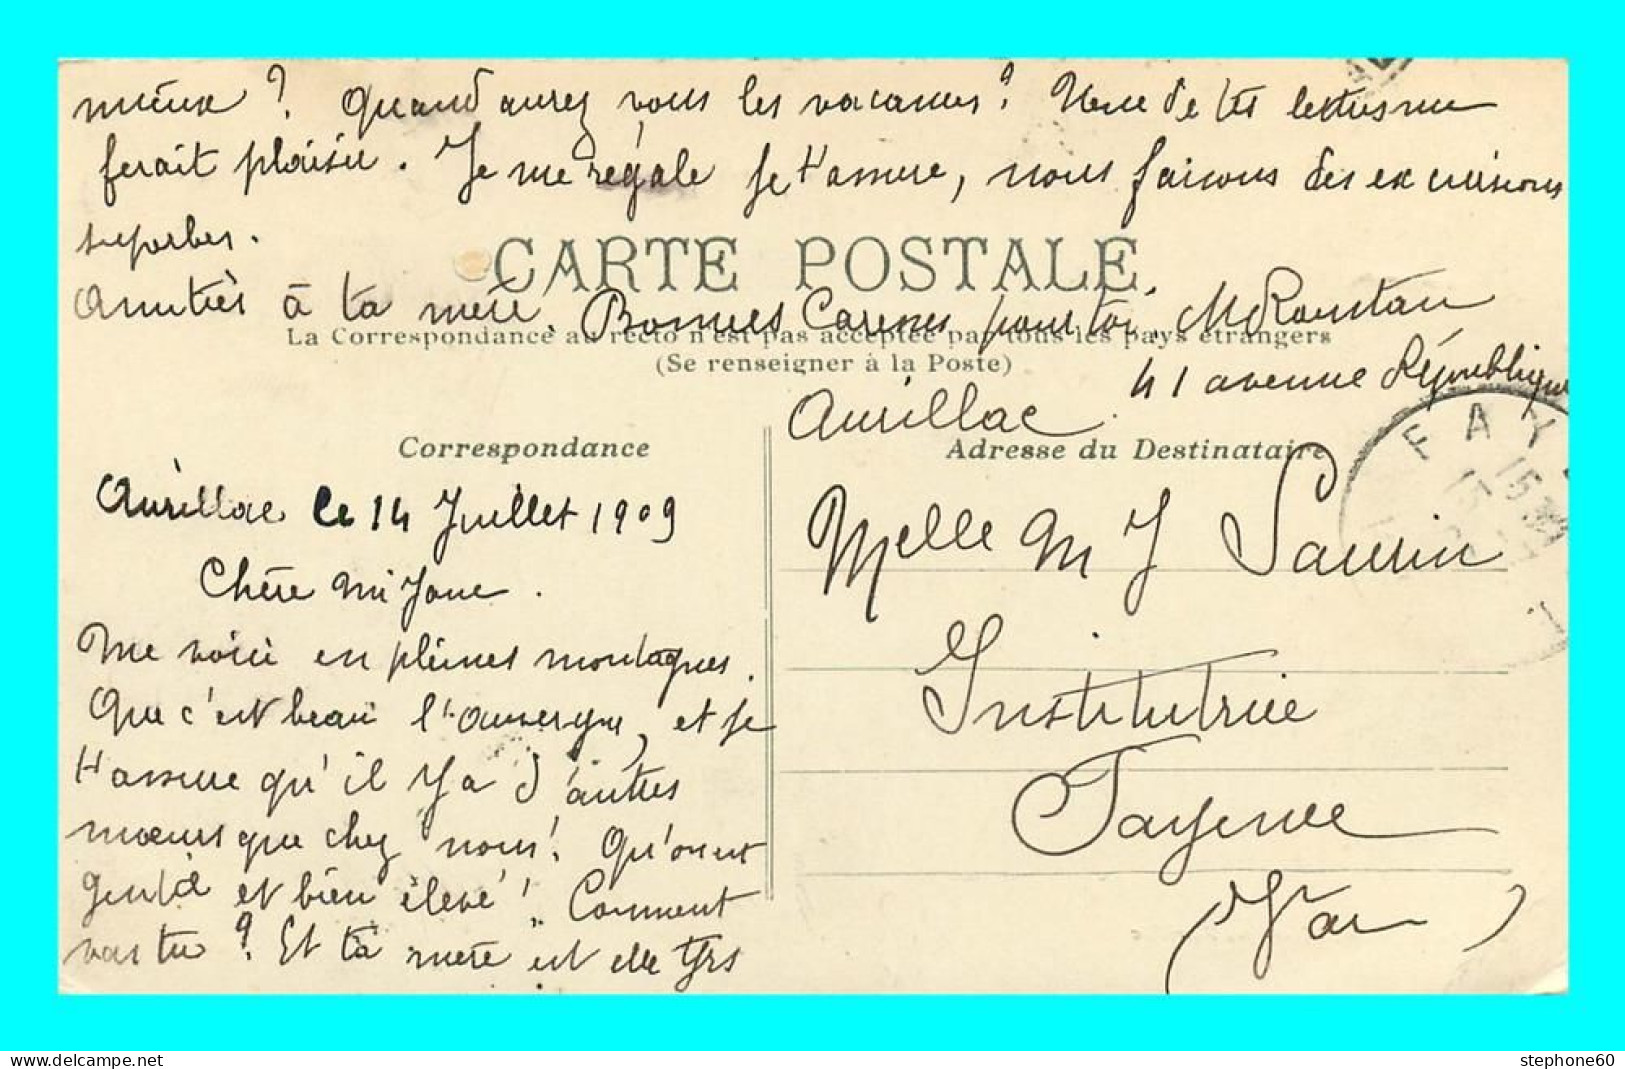 mieux ? Quand aurez vous les vacances ? Une de tes lettres me
ferait plaisir. Je me régale je t'assure, nous faisons des excursions
superbes.
CARTE POSTALE
Amitiés à ta mère. Bonnes Caresses pour toi. M Roustan
La Correspondance au recto n'est pas acceptée par tous les pays étrangers
(Se renseigner à la Poste)
41 avenue République
Aurillac
Correspondance
Adresse du Destinataire
FAY
15
Aurillac le 14 Juillet 1909
Chère Mi Jane.
Me voici en pleines montagnes.
Que c'est beau l'Auvergne, et je
t'assure qu'il y a d'autres
mœurs que chez nous ! Qu'on est
gentil et bien élevé ! Comment
vas tu ? Et ta mère est elle tjrs
Melle M J Saurin
Institutrice
Fayence
(Var)
stephone60